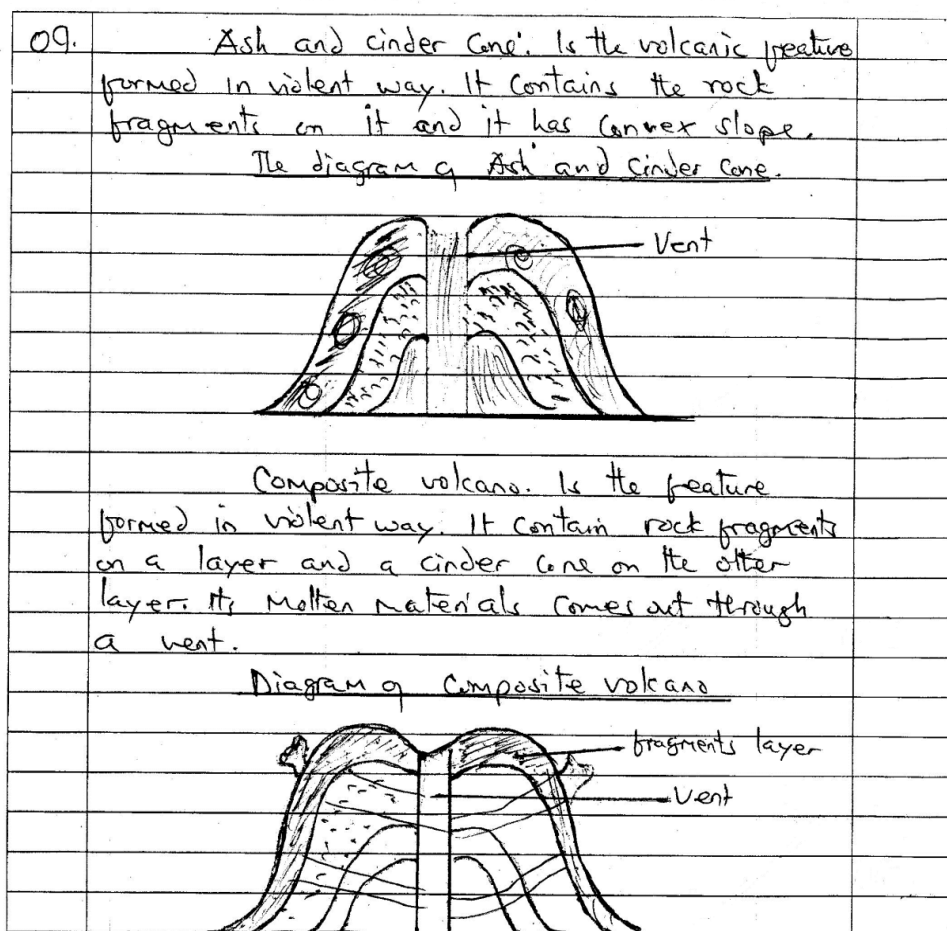 09. Ash and cinder Cone: Is the volcanic feature
formed in violent way. It Contains the rock
fragments on it and it has Convex slope.
The diagram of Ash and Cinder Cone.
Vent
Composite volcano. Is the feature
formed in violent way. It Contain rock fragments
on a layer and a cinder Cone on the other
layer. Its Molten materials comes out through
a vent.
Diagram of Composite volcano
fragments layer
Vent